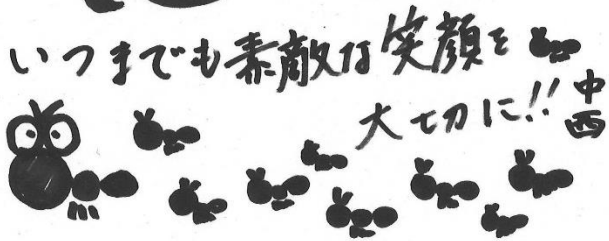 いつまでも素敵な笑顔を
大切に!!
中西